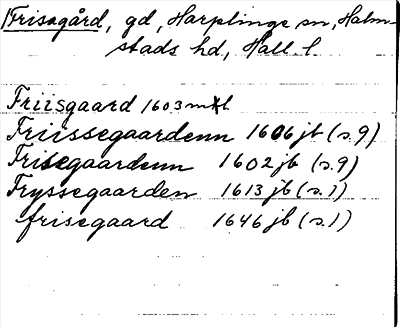 Frisagård, gd, Harplinge sn, Halm-
stads hd, Hall. l.
Friisgaard 1603 mtl
Friissegaardenn 1606 jb (s. 9)
Frisegaardenn 1602 jb (s. 9)
Fryssegaarden 1613 jb (s. 1)
frisegaard 1646 jb (s. 1)